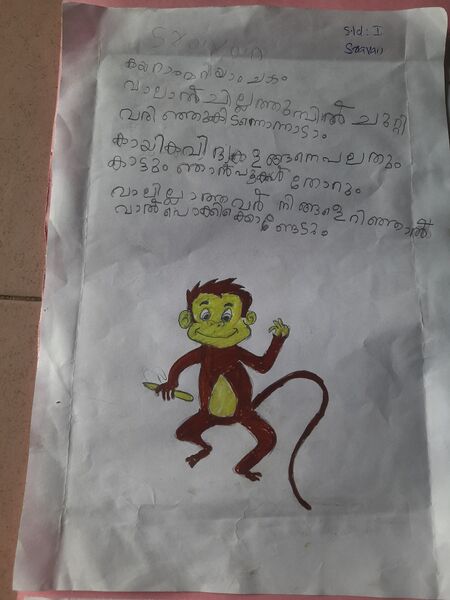 Std: I
Sravan
Sravan
കയറാം മറിയാം ചാടാം
വാലാൽ ചില്ലത്തുമ്പിൽ ചുറ്റി
വരിഞ്ഞുകിടന്നൊന്നാടാം
കായികവിദ്യകളങ്ങനെ പലതും
കാട്ടും ഞാൻ പല തോറും
വാലില്ലാത്തവർ നിങ്ങളെറിഞ്ഞാൽ
വാൽപൊക്കിക്കൊണ്ടോടും